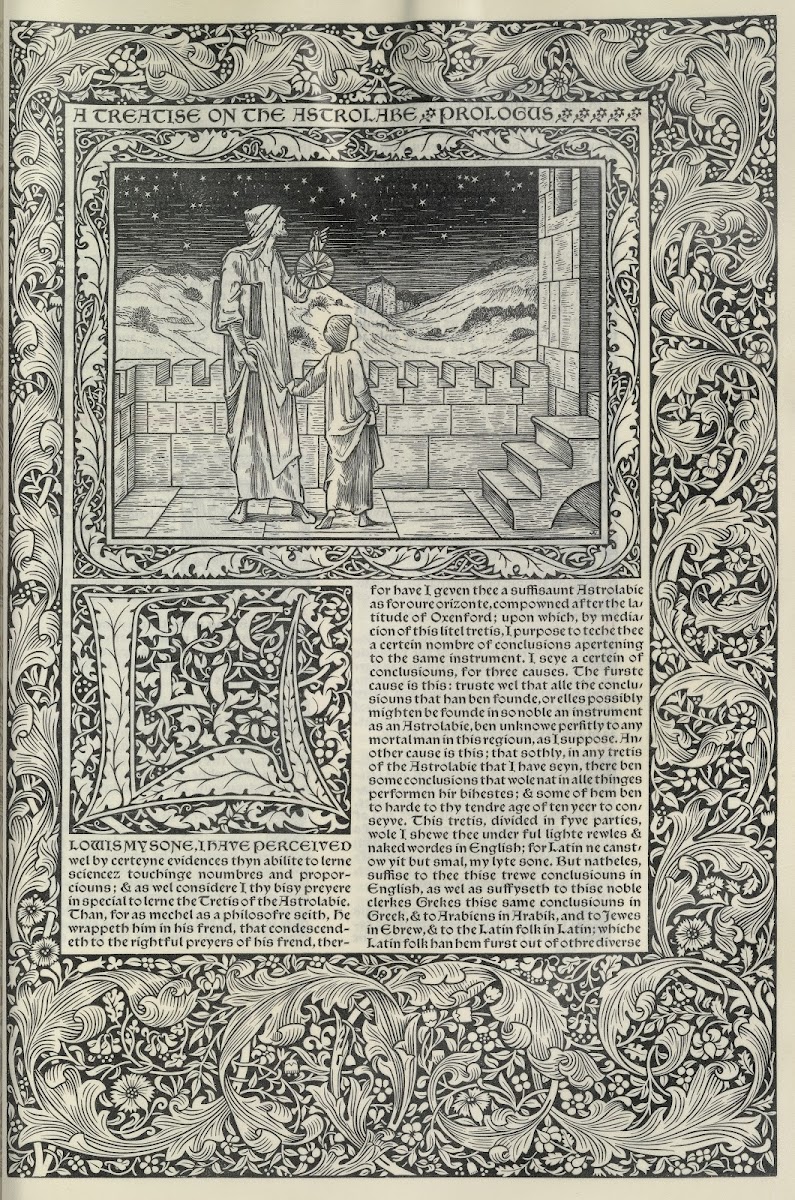 A TREATISE ON THE ASTROLABE, PROLOGUS
LITE
LL
LOWIS MY SONE, I HAVE PERCEIVED
wel by certeyne evidences thyn abilite to lerne
sciencez touchinge noumbres and propor-
ciouns; & as wel considere I thy bisy preyere
in special to lerne the Tretis of the Astrolabie.
Than, for as mechel as a philosofre seith, he
wrappeth him in his frend, that condescend-
eth to the rightful preyers of his frend, ther-
for have I geven thee a suffisaunt Astrolabie
as for oure orizonte, compowned after the la-
titude of Oxenford; upon which, by media-
cion of this litel tretis, I purpose to teche thee
a certein nombre of conclusions apertening
to the same instrument. I seye a certein of
conclusiouns, for three causes. The furste
cause is this: truste wel that alle the conclu-
siouns that han ben founde, or elles possibly
mighten be founde in so noble an instrument
as an Astrolabie, ben unknowe perfitly to any
mortal man in this regioun, as I suppose. An-
other cause is this; that sothly, in any tretis
of the Astrolabie that I have seyn, there ben
some conclusions that wole nat in alle thinges
performen hir bihestes; & some of hem ben
to harde to thy tendre age of ten yeer to con-
seyve. This tretis, divided in fyve parties,
wole I shewe thee under ful lighte rewles &
naked wordes in English; for Latin ne canst-
ow yit but smal, my lyte sone. But natheles,
suffise to thee thise trewe conclusiouns in
English, as wel as suffyseth to thise noble
clerkes Grekes thise same conclusiouns in
Greek, & to Arabiens in Arabik, and to Jewes
in Ebrew, & to the Latin folk in Latin; whiche
Latin folk han hem furst out of othre diverse